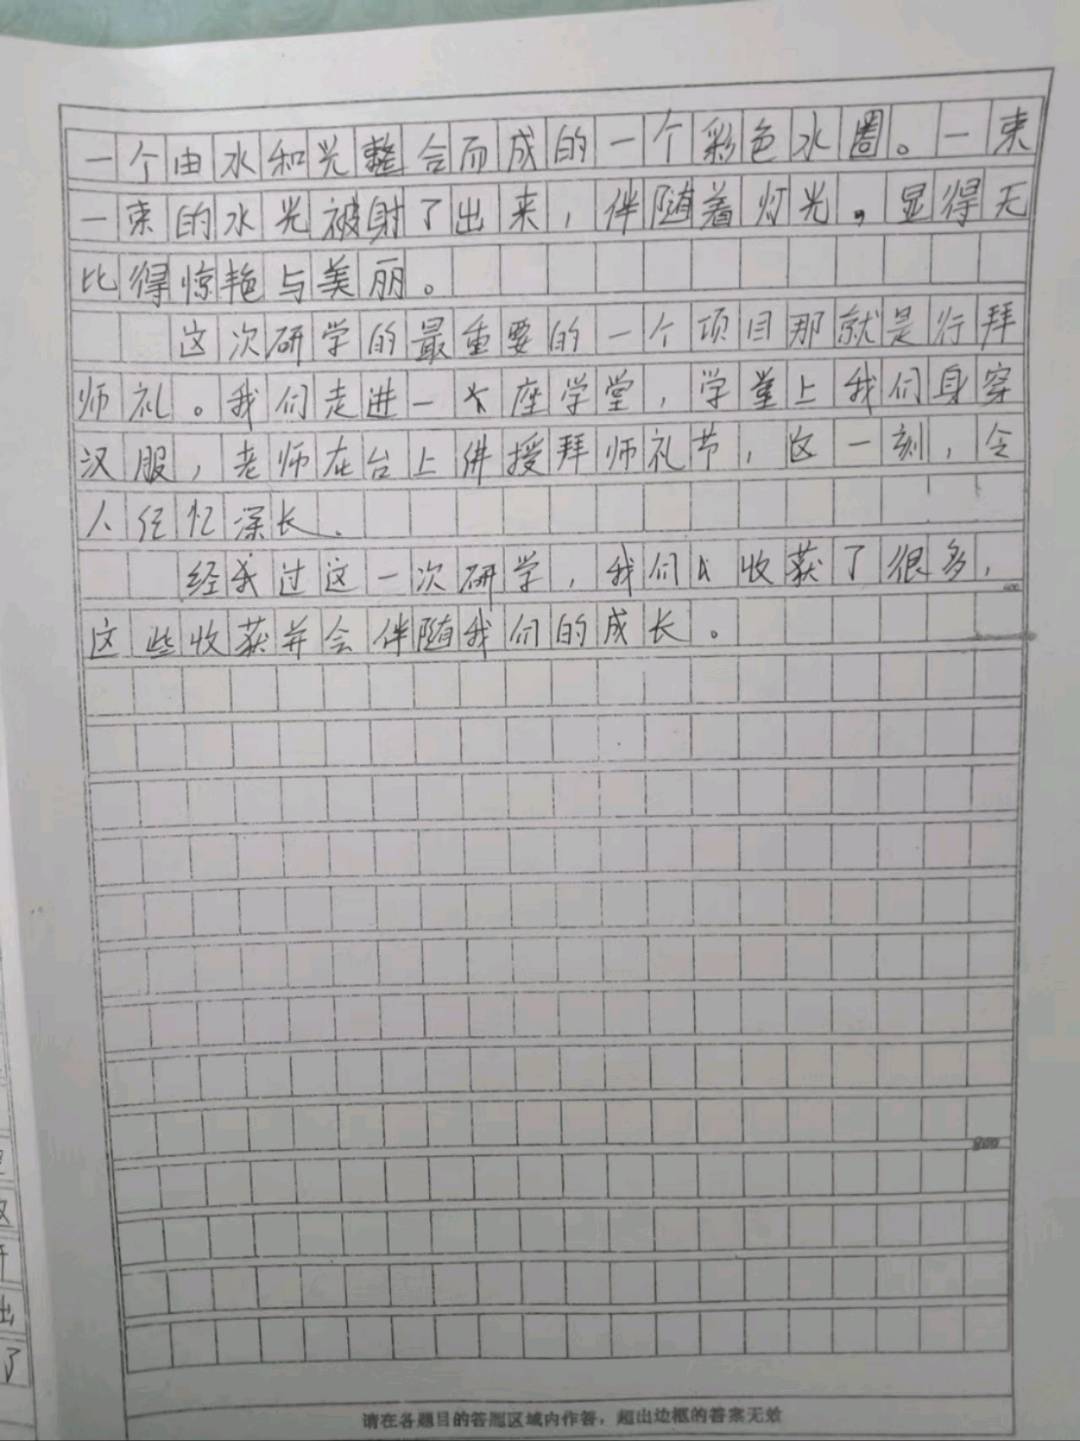 一个由水和光整合而成的一个彩色水圈。一束
一束的水光被射了出来，伴随着灯光，显得无
比得惊艳与美丽。
这次研学的最重要的一个项目那就是行拜
师礼。我们走进一大座学堂，学堂上我们身穿
汉服，老师在台上讲授拜师礼节，这一刻，令
人任忆深长．
经我过这一次研学，我们 收获了很多，
这些收获并会伴随我们的成长。
请在各题目的答题区域内作答，超出边框的答案无效
出
了